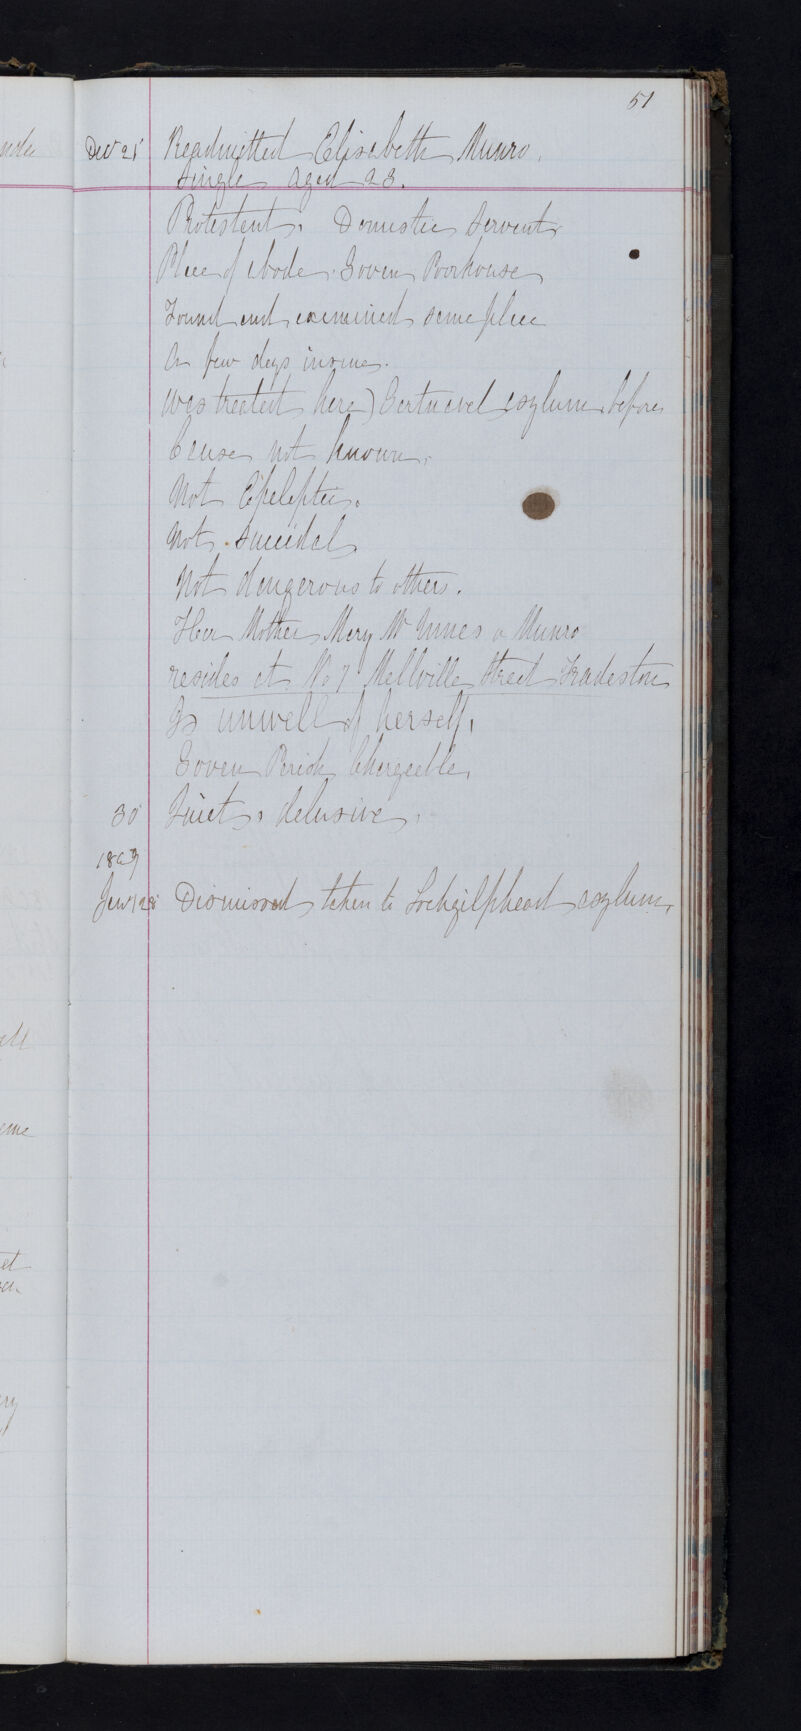 51
Decr 21 Readmitted Elisabeth Munro.
Single Aged 23.
Protestent. Domestic Servent
Place of abode. Goven Poorhouse
Found and examined same place
A few days insane.
Was treated here) Gartnavel asylum before
Cause not known.
Not Epeleptic.
Not Suicidal
Not dangerous to others.
Her Mother Mary Mc Innes or Munro
resides at No 7 Mellville Street Tradeston
Is unwell of herself.
Goven Parish Chargeable.
30 Quiet. delusive.
Jany 28 Dismissed taken to Lochgilphead asylum.